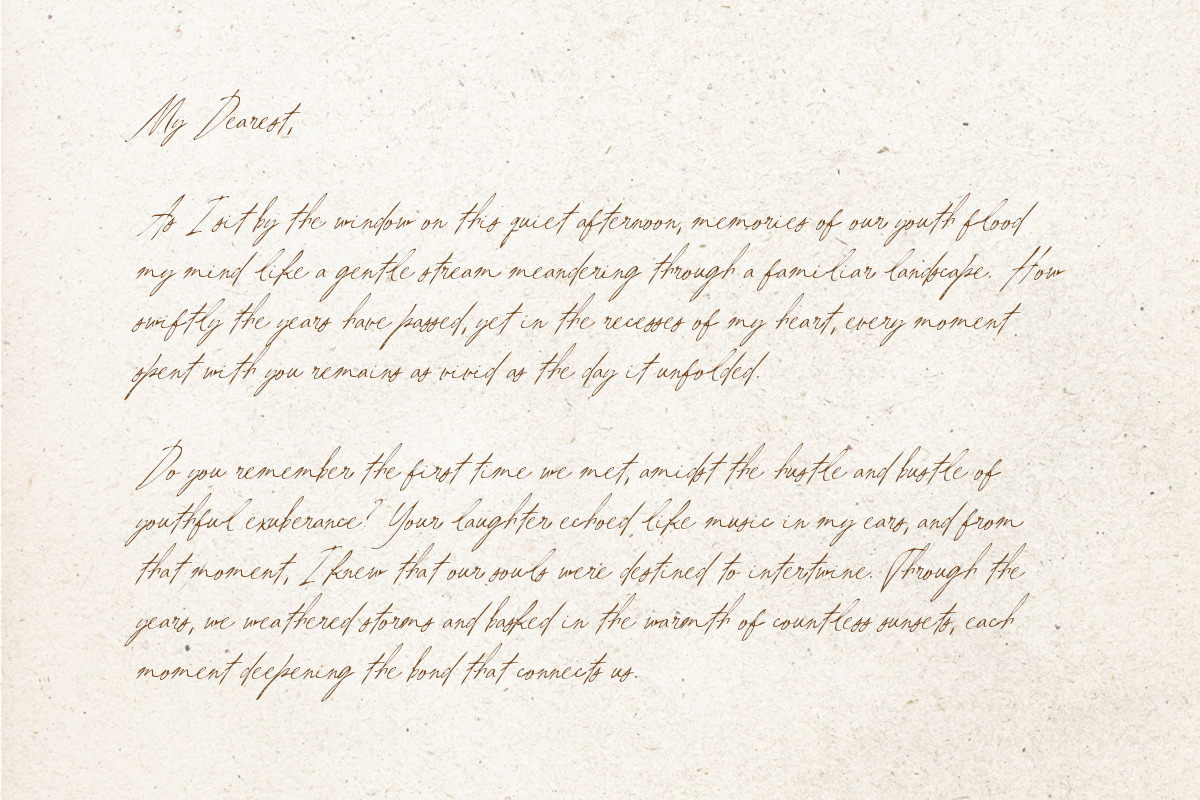 My Dearest,
As I sit by the window on this quiet afternoon, memories of our youth flood
my mind like a gentle stream meandering through a familiar landscape. How
swiftly the years have passed, yet in the recesses of my heart, every moment
spent with you remains as vivid as the day it unfolded.
Do you remember the first time we met, amidst the hustle and bustle of
youthful exuberance? Your laughter echoed like music in my ears, and from
that moment, I knew that our souls were destined to intertwine. Through the
years, we weathered storms and basked in the warmth of countless sunsets, each
moment deepening the bond that connects us.